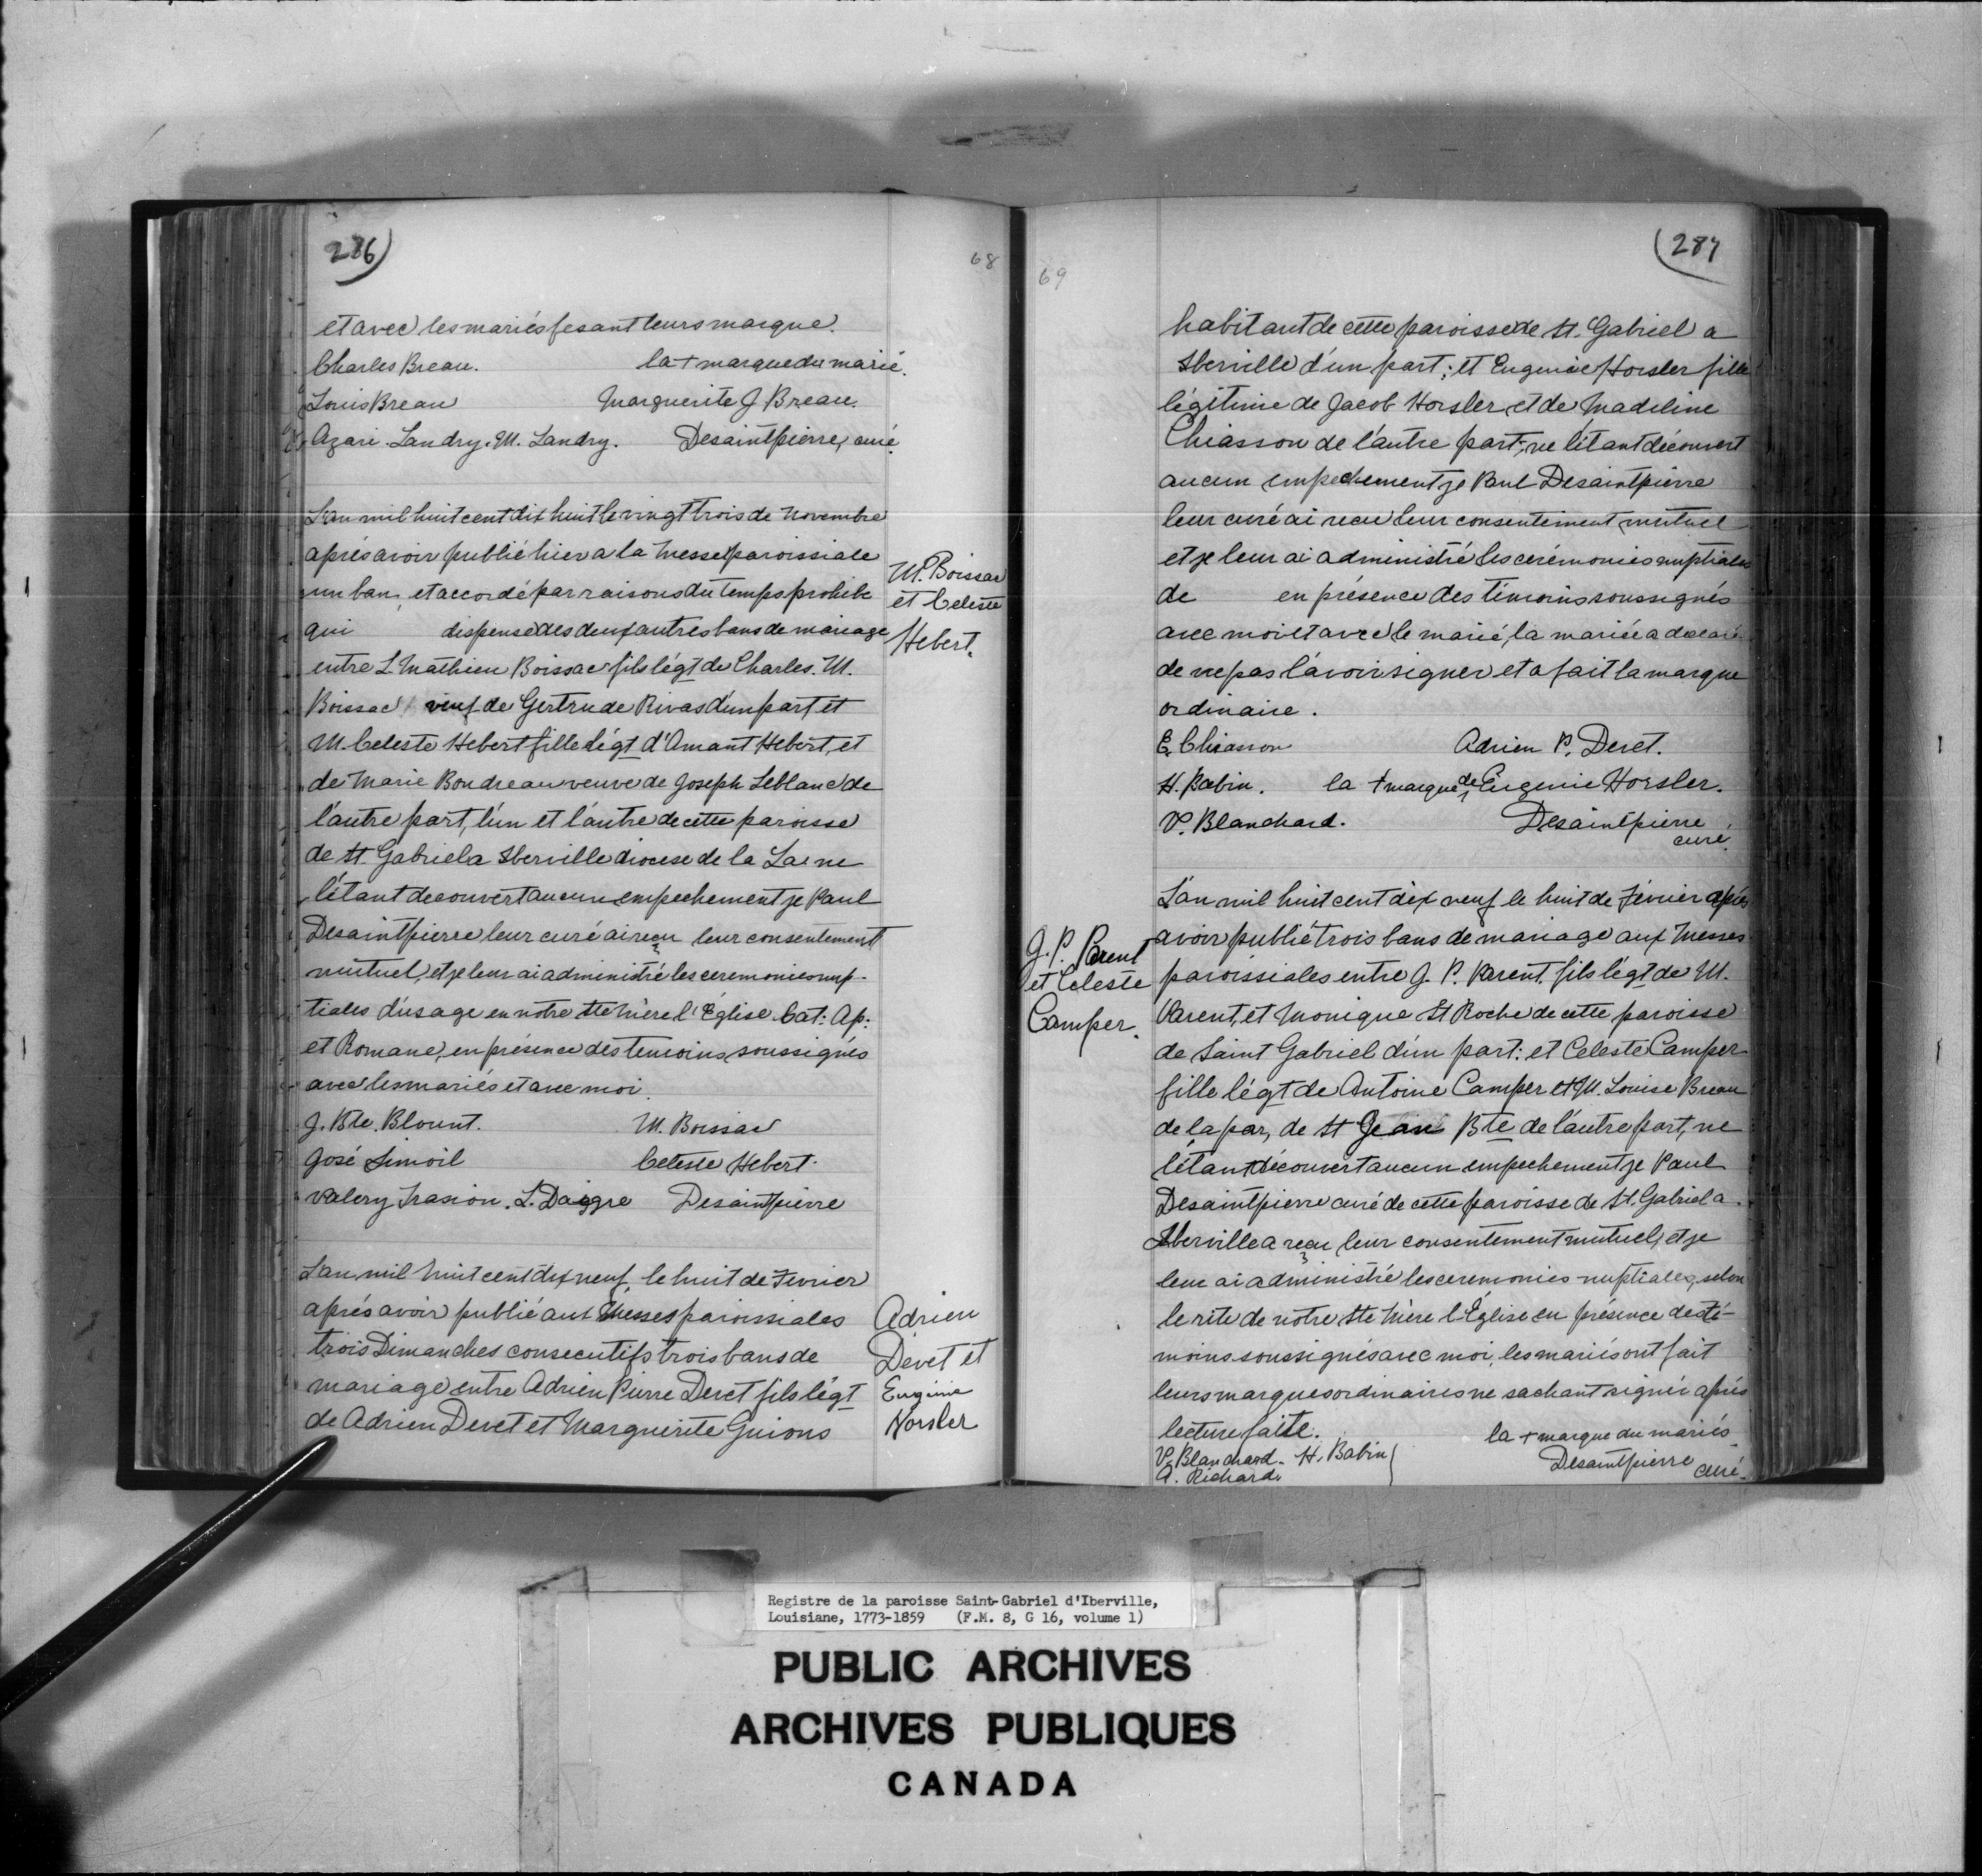 286)
68
et avec les mariés fesant leurs marque.
Charles Breau. la + marque du marié.
Louis Breau Marguerite J. Breau.
Azari Landry. M. Landry. Desaintpierre, curé.
L'an mil huit cent dix huit le vingt trois de Novembre
aprés avoir publié hier a la Messe paroissiale
un ban, et accordé par raisons du temps prohibe
qui dispense des deux autres bans de mariage
entre L. Mathieu Boissac fils légt de Charles. M.
Boissac veuf de Gertrude Rivas d'un part et
M. Celeste Hebert fille légt d'Amant Hebert, et
de Marie Boudreau veuve de Joseph Leblanc de
l'autre part, l'un et l'autre de cette paroisse
de St. Gabriel a Iberville diocese de la La: ne
s'étant decouvert aucun empechement je Paul
Desaintpierre leur curé ai reçu leur consentement
mutuel, et je leur ai administré les ceremonies nup-
tiales d'usage en notre Ste Mère l'Église Cat: Ap:
et Romane, en présence des temoins soussignés
avec les mariés et avec moi.
J. Bte. Blount. M. Boissac
José Simoil Celeste Hebert.
Valery Trasion. L. Daigre Desaintpierre
M. Boissac
et Celeste
Hebert.
L'an mil huit cent dix neuf le huit de Fevrier
aprés avoir publié aux Messes paroissiales
trois Dimanches consecutifs trois bans de
mariage entre Adrien Pierre Deret fils légt
de Adrien Deret et Marguerite Guions
Adrien
Devet et
Eugénie
Horsler
(287
69
habitant de cette paroisse de St. Gabriel a
Iberville d'un part; et Eugenie Horsler fille
légitime de Jacob Horsler, et de Madeline
Chiasson de l'autre part; ne s'étant décovert
aucun empechement je Paul Desaintpierre
leur curé ai recu leur consentement mutuel
et je leur ai administré les cerémonies nuptiales
de en présence des témoins soussignés
avec moi et avec le marié, la mariée a declaré
de ne pas savoir signer et a fait la marque
ordinaire.
E. Chiasson Adrien P. Deret.
H. Babin. la + marque de Eugenie Horsler.
V. Blanchard. Desaintpierre
curé.
J. P. Parent
et Celeste
Camper.
L'an mil huit cent dix neuf le huit de Février aprés
avoir publié trois bans de mariage aux Messes
paroissiales entre J. P. Parent fils légt de M.
Parent, et Monique St Roche de cette paroisse
de Saint Gabriel d'un part: et Celeste Camper
fille légt de Antoine Camper et M. Louise Breau
de la par, de St Jean Bte de l'autre part, ne
s'étant découvert aucun empechement je Paul
Desaintpierre curé de cette paroisse de St. Gabriel a
Iberville a reçu leur consentement mutuel, et je
leur ai administré les ceremonies nuptiales, selon
le rite de notre Ste Mère l'Église en présence des té-
moins soussignés avec moi, les mariés ont fait
leurs marques ordinaires ne sachant signer aprés
lecture faite. la + marque du mariés
V. Blanchard. H. Babin Desaintpierre curé.
A. Richard.
Registre de la paroisse Saint-Gabriel d'Iberville,
Louisiane, 1773-1859 (F.M. 8, G 16, volume 1)
PUBLIC ARCHIVES
ARCHIVES PUBLIQUES
CANADA